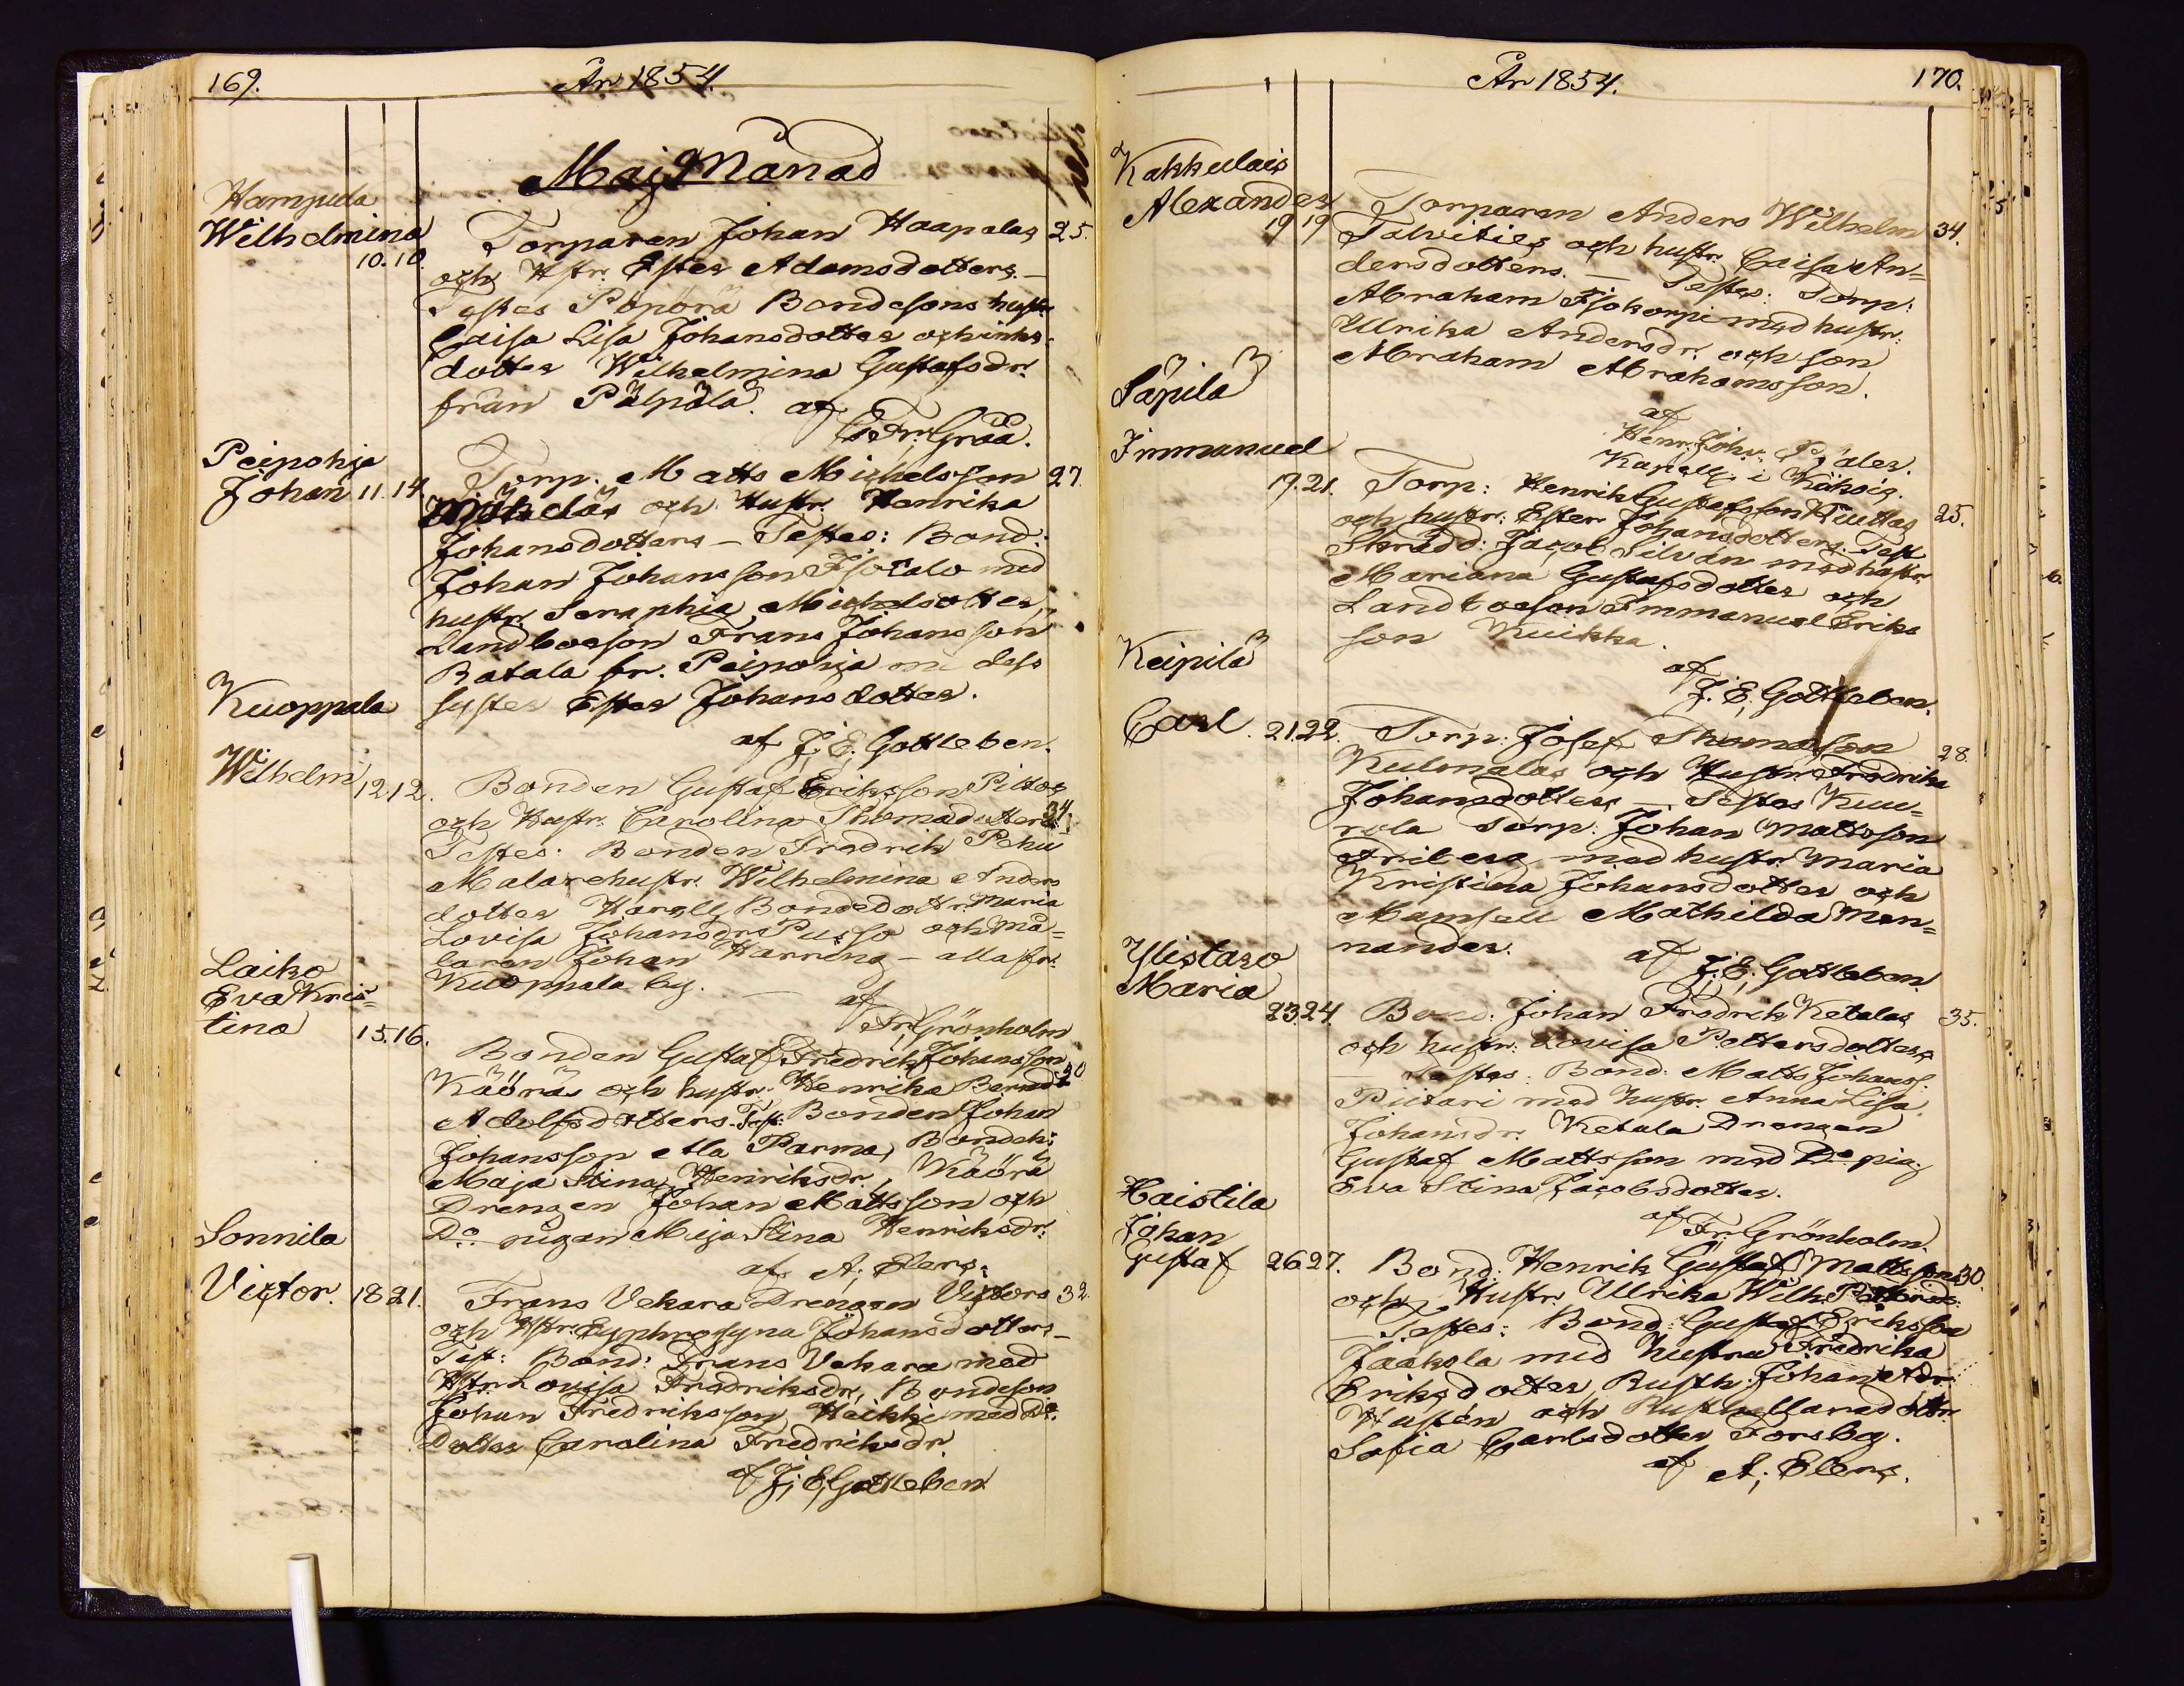 169.
År 1854.
Maj Månad
Hampula
Wilhelmina
10. 10.
Torparen Johan Haapalas 25.
och Hstr. Ester Adamsdotters. –
Testes Pöpörä Bondesons hustr
Caisa Lisa Johansdotter och inhs.
dotter Wilhelmina Gustafsdr.
från Pälpälä. af
Fr. Gråå.
Peipohja
Johan 11. 14.
Torp. Matts Michelsson 27.
Mäkeläs och Hustr. Henrika
Johansdotters – Testes: Bond:
Johan Johansson Isotalo med
hustr. Seraphia Michelsdotter,
Landboeson Frans Johansson
Ratala fr. Peipohja m dess
syster Ester Johansdotter.
af J. E. Gottleben.
Kuoppala
Wilhelm 12. 12.
Bonden Gustaf Eriksson Pittos
och Hustr. Carolina Thomasdotters 34.
Testes: Bonden Fredrik Pehu
Malarehustr. Wilhelmina Anders
dotter Bondedottr. Maria
Lovisa Johansdr. Pusso och Må=
laren Johan Harring – alla fr.
Kuoppala by.
af
Fr. Grönholm
Laiko
Eva Kris=
tina 15. 16.
Bonden Gustaf Fredrik Johansson
Kääräs och hustr. Henrika Bernd: 20
Adolfsdotters. Test: Bonden Johan
Johansson Parma, Bondeh:
Maja Stina Henriksdr, Käärä
Drengen Johan Mattsson och
Do. pigan Maja Stina Henriksdr:
af A. Elers.
Sonnila
Victor. 18 21.
Frans Vekara Drengen Victors 32.
och Hstr. Eyphrosyna Johansdotters –
Test: Bond: Frans Vekara med
Hstr. Lovisa Fredriksdr, Bondeson
Johan Fredriksson Heikki med Do.
Dotter Carolina Fredriksdr.
af J. E. Gottleben
År 1854.
170.
Kakkulais
Alexander
19 19
Torparen Anders Wilhelm 34.
Talvities och hustr. Caisa An=
dersdotters. – Testes: Torp:
Abraham Isokorpi med hustr:
Ulrika Andersdr. och son
Abraham Abrahamsson.
af
Henr. Joh.
Kapell. i Kiikois.
Säpilä
Immanuel
19. 21.
Torp: Henrik Gustafsson Tuttas 25.
och hustr: Ester Johansdotters. Test
Skrädd: Jacob Silvån med hustr
Mariana Gustafsdotter och
Landboeson Immanuel Eriks
son Kuikka.
af
J. E. Gottleben.
Keipilä
Carl. 21. 22.
Torp: Josef Thomasson 28.
Kulmalas och Hustr. Fredrika
Johansdotters – Testes Kuu=
rola Torp. Johan Mattsson
Friberg med hustr. Maria
Kristina Johansdotter och
Mamsell Mathilda Mon=
nander.
af
J. E. Gottleben.
Ylistaro
Maria
23. 24.
Bond: Johan Fredrik Ketalas 35.
och hustr: Lovisa Pettersdotters
– Testes: Bond: Matts Johanss.
Piitari med hustr. Anna Lisa
Johansdr. Ketala Drengen
Gustaf Mattsson med Do. pig.
Eva Stina Jacobsdotter.
af Fr. Grönholm.
Haistila
Johan
Gustaf 26 27.
Bond: Henrik Gustaf Mattssons 30.
och Hustr. Ulrika Wilh. Pettersd.
– Testes: Bond: Gustaf Eriksson
Jaakola med hustru Fredrika
Eriksdotter, Rusth. Johan Adr.
Hustén och Rusthållaredottr.
Sofia Carlsdotter Forsbg.
af A. Elers.